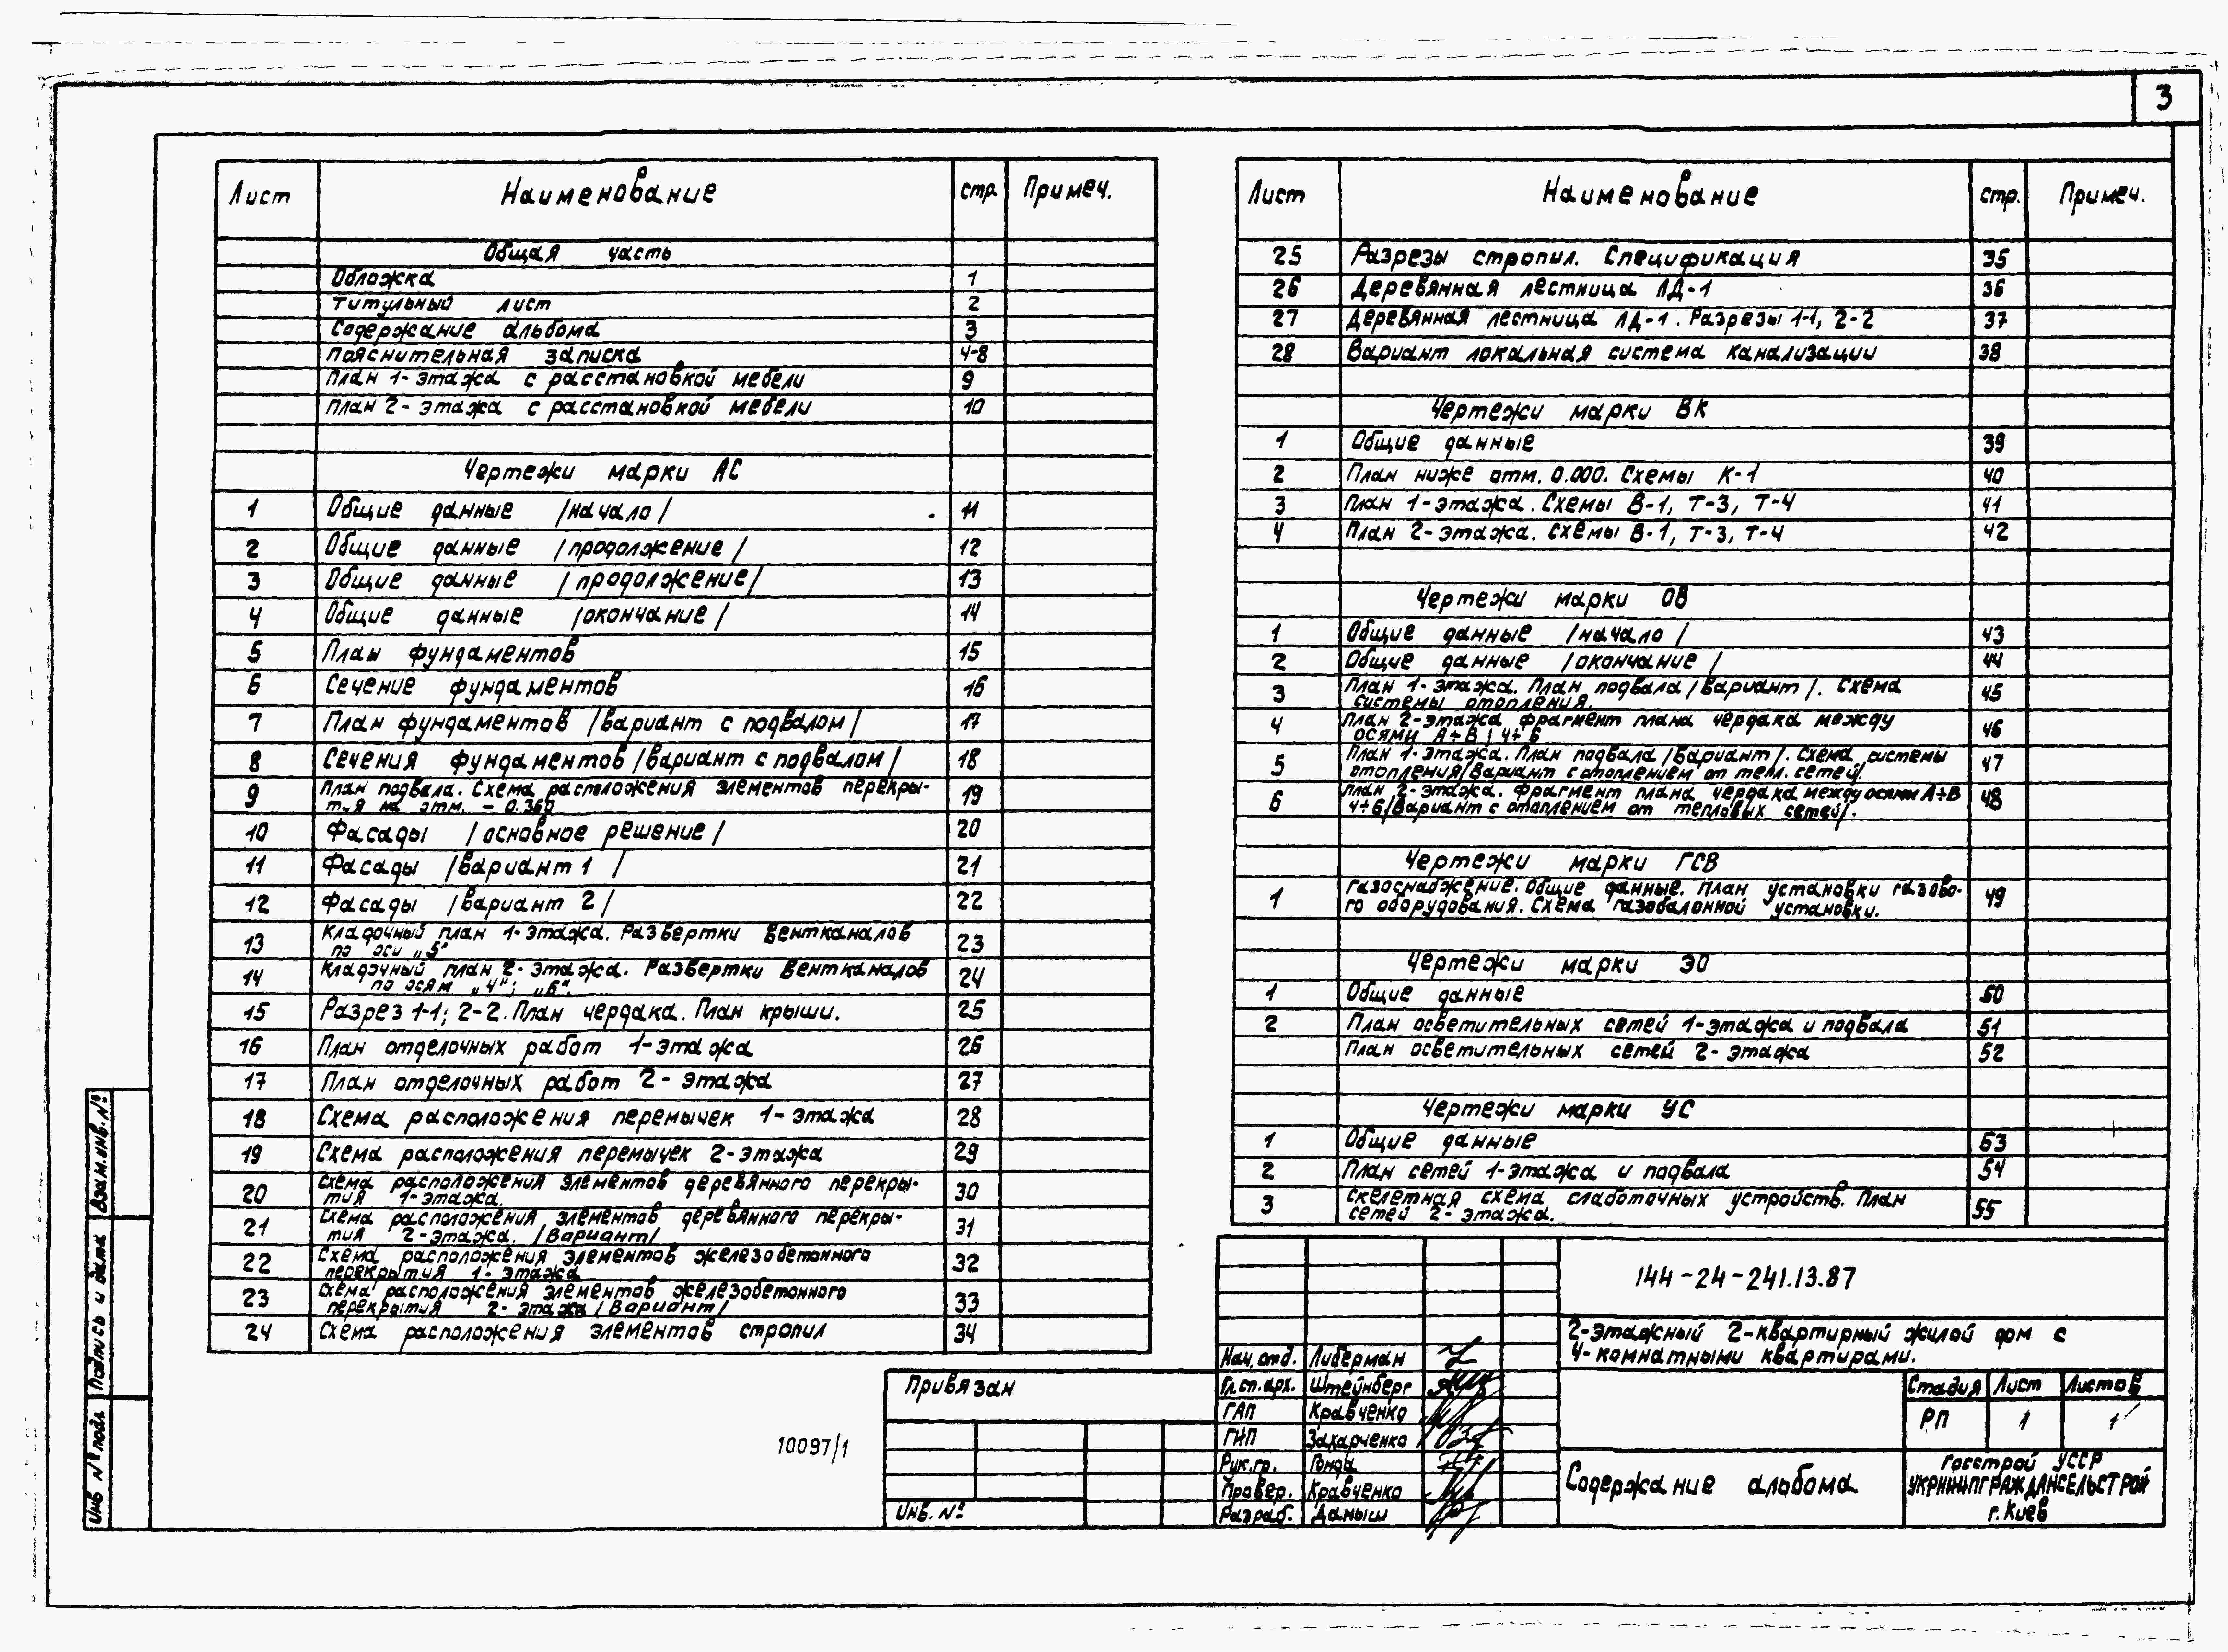 3
Лист Наименование стр Примеч.
Общая часть
Обложка 1
Титульный лист 2
Содержание альбома 3
Пояснительная записка 4-8
План 1-этажа с расстановкой мебели 9
План 2-этажа с расстановкой мебели 10
Чертежи марки АС
1 Общие данные /начало/ 11
2 Общие данные /продолжение/ 12
3 Общие данные /продолжение/ 13
4 Общие данные /окончание/ 14
5 План фундаментов 15
6 Сечение фундаментов 16
7 План фундаментов /вариант с подвалом/ 17
8 Сечения фундаментов /вариант с подвалом/ 18
9 План подвала. Схема расположения элементов перекры-
тия на отм. -0.360 19
10 Фасады /основное решение/ 20
11 Фасады /вариант 1/ 21
12 Фасады /вариант 2/ 22
13 Кладочный план 1-этажа. Развертки вентканалов
по оси „5" 23
14 Кладочный план 2-этажа. Развертки вентканалов
по осям „4"; „6". 24
15 Разрез 1-1; 2-2. План чердака. План крыши. 25
16 План отделочных работ 1-этажа 26
17 План отделочных работ 2-этажа 27
18 Схема расположения перемычек 1-этажа 28
19 Схема расположения перемычек 2-этажа 29
20 Схема расположения элементов деревянного перекры-
тия 1-этажа. 30
21 Схема расположения элементов деревянного перекры-
тия 2-этажа. /Вариант/ 31
22 Схема расположения элементов железобетонного
перекрытия 1-этажа 32
23 Схема расположения элементов железобетонного
перекрытия 2-этажа /Вариант/ 33
24 Схема расположения элементов стропил 34
Лист Наименование стр. Примеч.
25 Разрезы стропил. Спецификация 35
26 Деревянная лестница ЛД-1 36
27 Деревянная лестница ЛД-1. Разрезы 1-1, 2-2 37
28 Вариант локальная система канализации 38
Чертежи марки ВК
1 Общие данные 39
2 План ниже отм. 0.000. Схемы К-1 40
3 План 1-этажа. Схемы В-1, Т-3, Т-4 41
4 План 2-этажа. Схемы В-1, Т-3, Т-4 42
Чертежи марки ОВ
1 Общие данные /начало/ 43
2 Общие данные /окончание/ 44
3 План 1-этажа. План подвала /вариант/. Схема
системы отопления. 45
4 План 2-этажа фрагмент плана чердака между
осями А÷В; 4÷6 46
5 План 1-этажа. План подвала /Вариант/. Схема системы
отопления /Вариант с отоплением от тепл. сетей/. 47
6 План 2-этажа. Фрагмент плана чердака между осями А÷В
4÷6 /Вариант с отоплением от тепловых сетей/. 48
Чертежи марки ГСВ
1 Газоснабжение. Общие данные. План установки газово-
го оборудования. Схема газобалонной установки. 49
Чертежи марки ЭО
1 Общие данные 50
2 План осветительных сетей 1-этажа и подвала 51
План осветительных сетей 2-этажа 52
Чертежи марки УС
1 Общие данные 53
2 План сетей 1-этажа и подвала 54
3 Скелетная схема слаботочных устройств. План
сетей 2-этажа. 55
144-24-241.13.87
2-этажный 2-квартирный жилой дом с
4-комнатными квартирами.
Нач. отд. Либерман
Гл.сп.арх. Штейнберг
ГАП Кравченко
ГИП Захарченко
Рук.гр. Гонда
Провер. Кравченко
Разраб. Даныш
Стадия Лист Листов
РП 1 1
Содержание альбома.
Госстрой УССР
УКРНИИПГРАЖДАНСЕЛЬСТРОЙ
г. Киев
Привязан
Инв. №
10097/1
Взам.инв.№
Подпись и дата
Инв № подл